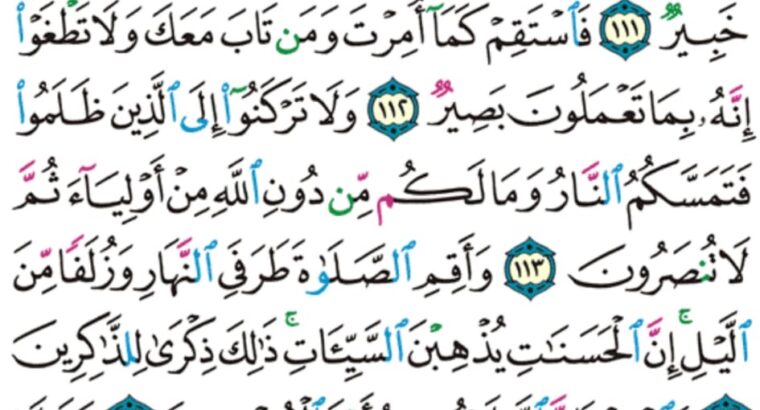 خَبِيرٌ ١١١ فَٱسْتَقِمْ كَمَآ أُمِرْتَ وَمَن تَابَ مَعَكَ وَلَا تَطْغَوْا۟
إِنَّهُۥ بِمَا تَعْمَلُونَ بَصِيرٌ ١١٢ وَلَا تَرْكَنُوٓا۟ إِلَى ٱلَّذِينَ ظَلَمُوا۟
فَتَمَسَّكُمُ ٱلنَّارُ وَمَا لَكُم مِّن دُونِ ٱللَّهِ مِنْ أَوْلِيَآءَ ثُمَّ
لَا تُنصَرُونَ ١١٣ وَأَقِمِ ٱلصَّلَوٰةَ طَرَفَيِ ٱلنَّهَارِ وَزُلَفًا مِّنَ
ٱلَّيْلِ ۚ إِنَّ ٱلْحَسَنَٰتِ يُذْهِبْنَ ٱلسَّيِّـَٔاتِ ۚ ذَٰلِكَ ذِكْرَىٰ لِلذَّٰكِرِينَ